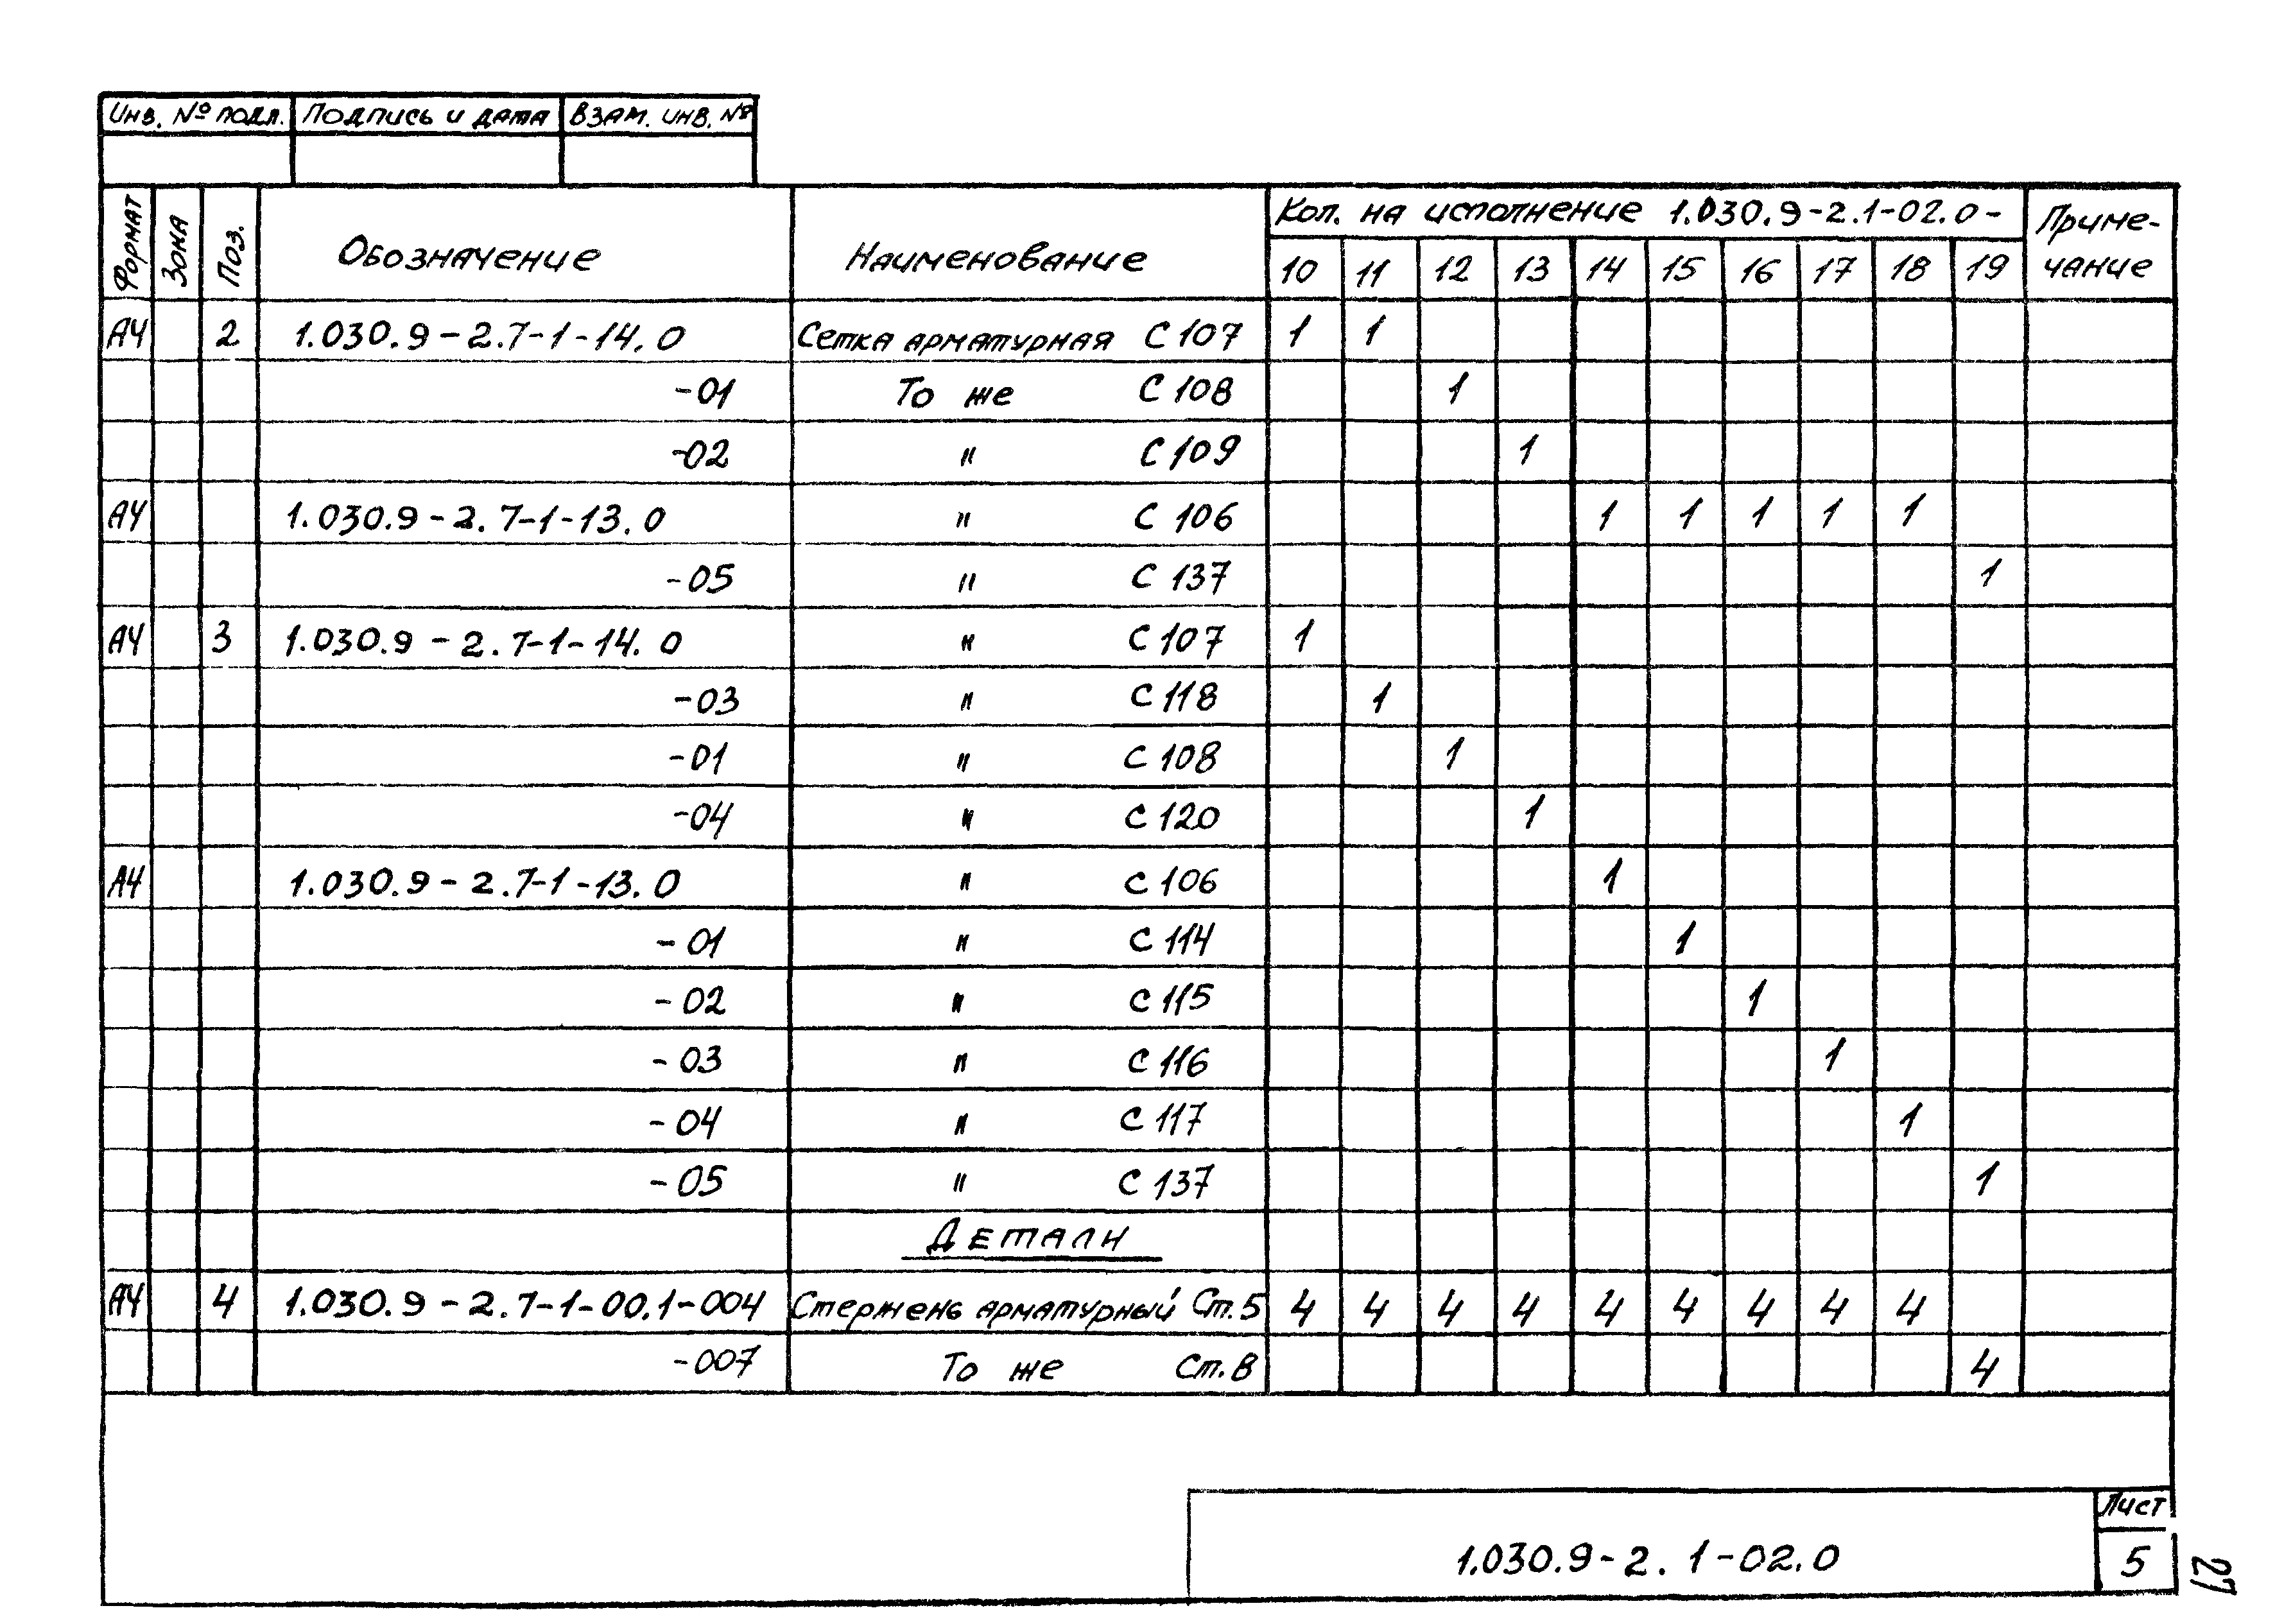 Инв. № подл. Подпись и дата Взам. инв. №
Формат Зона Поз. Обозначение Наименование Кол. на исполнение 1.030.9-2.1-02.0- Приме-
чание
10 11 12 13 14 15 16 17 18 19
А4 2 1.030.9-2.7-1-14.0 Сетка арматурная С 107 1 1
-01 То же С 108 1
-02 " С 109 1
А4 1.030.9-2.7-1-13.0 " С 106 1 1 1 1 1
-05 " С 137 1
А4 3 1.030.9-2.7-1-14.0 " С 107 1
-03 " С 118 1
-01 " С 108 1
-04 " С 120 1
А4 1.030.9-2.7-1-13.0 " С 106 1
-01 " С 114 1
-02 " С 115 1
-03 " С 116 1
-04 " С 117 1
-05 " С 137 1
Детали
А4 4 1.030.9-2.7-1-00.1-004 Стержень арматурный Ст.5 4 4 4 4 4 4 4 4 4
-007 То же Ст.8 4
1.030.9-2.1-02.0
Лист
5
27